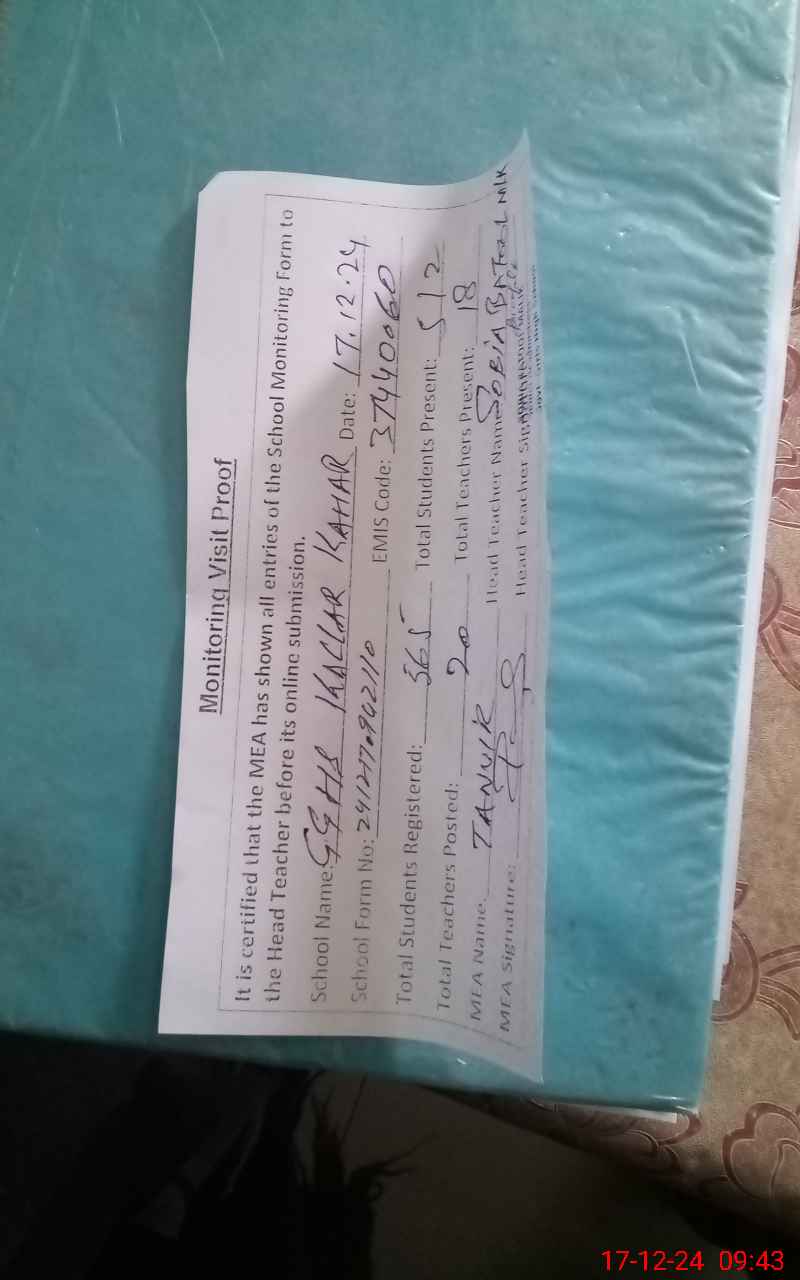 Monitoring Visit Proof
It is certified that the MEA has shown all entries of the School Monitoring Form to
the Head Teacher before its online submission.
School Name: GGHS KALLAR KAHAR Date: 17.12.24
School Form No: EMIS Code: 37440060
Total Students Registered: 565 Total Students Present: 512
Total Teachers Posted: 20 Total Teachers Present: 18
MEA Name: TANVIR Head Teacher Name: SOBIA BATOOL MLK
MEA Signature: Head Teacher
17-12-24 09:43